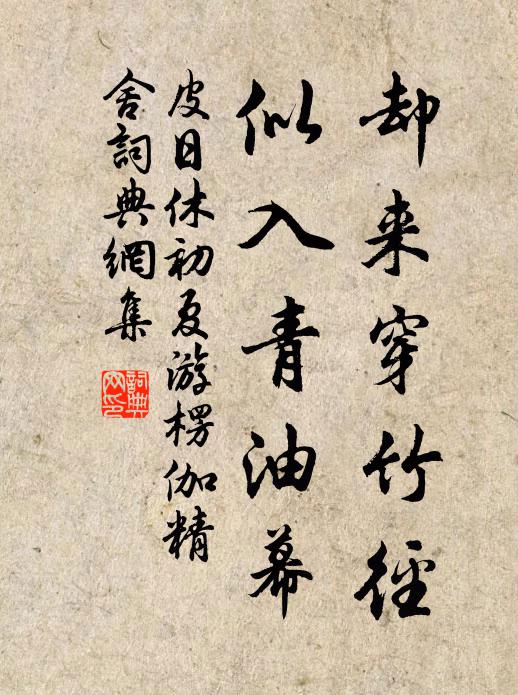 却来穿竹徑
似入青油幕
皮日休初夏游楞伽精
舍詞典網集
詞典
网印